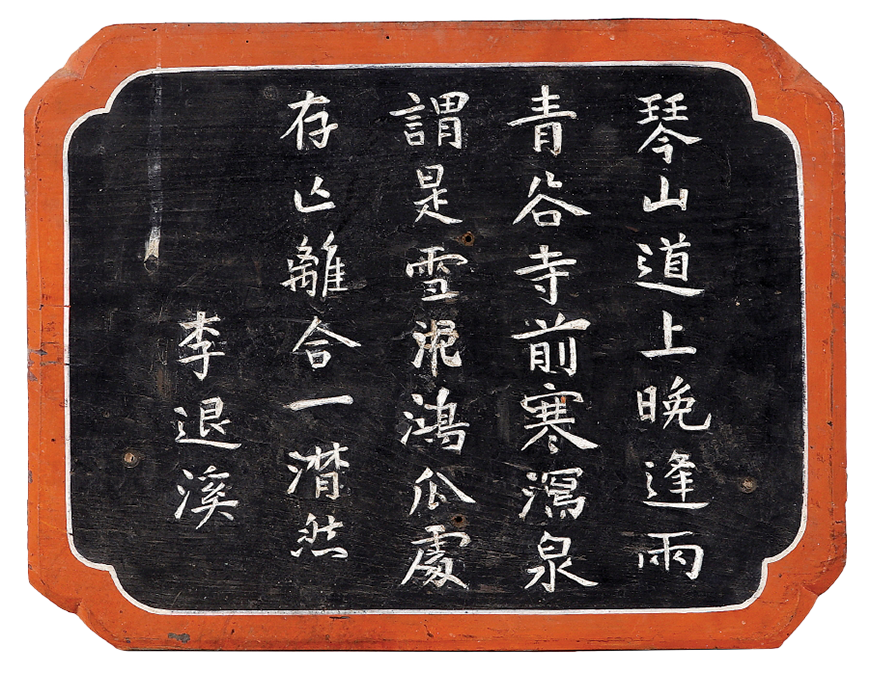 琴山道上晩逢雨
青谷寺前寒瀉泉
謂是雪泥鴻瓜處
存亡離合一潸然
李退溪